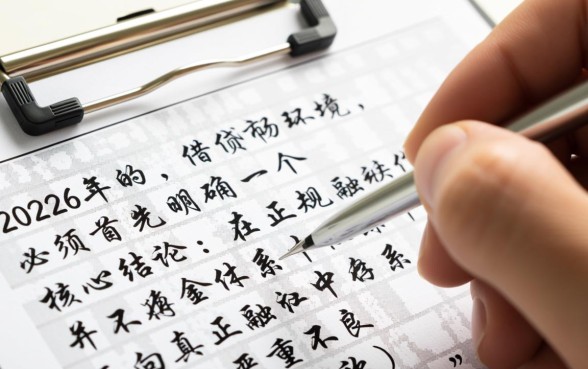 20226年的，借贷市环境，
必须首先明确一个
核心结论：在正规融
并不将金体系
向真正融社中存系
重不良
）”